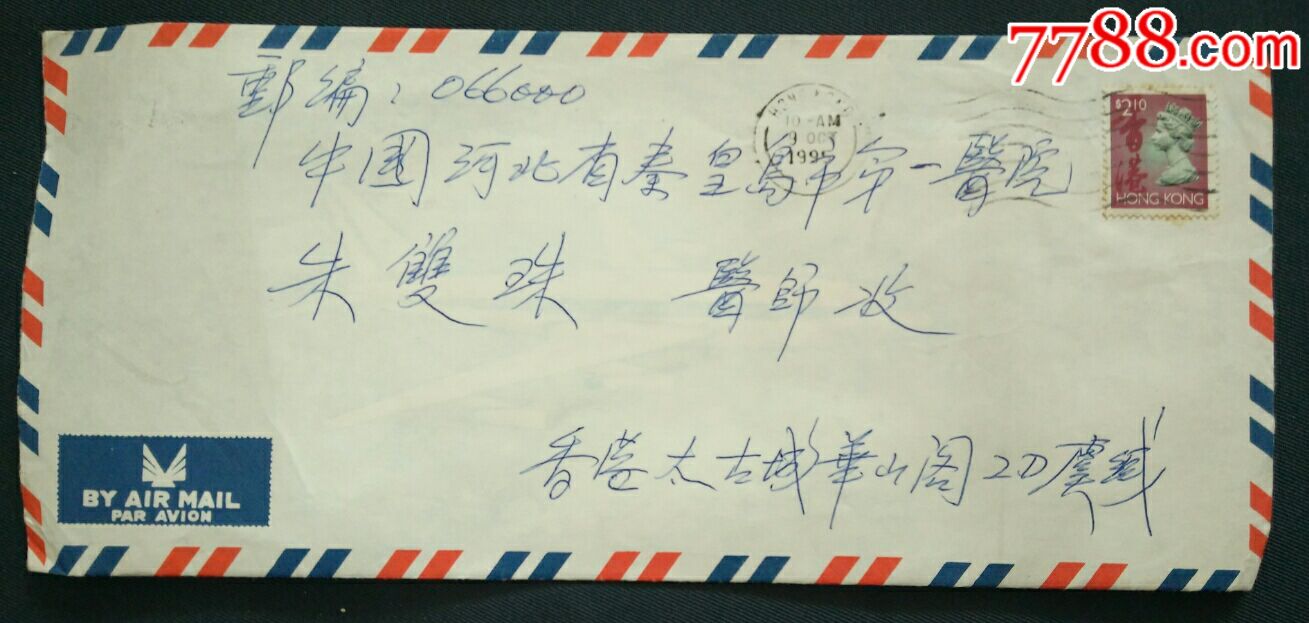 7788.com
郵編：066000
HONG KONG
10 AM
9 OCT
1995
$2.10
香港
HONG KONG
中國河北省秦皇島市第一醫院
朱雙珠 醫師收
香港太古城華山阁2D虞緘
BY AIR MAIL
PAR AVION